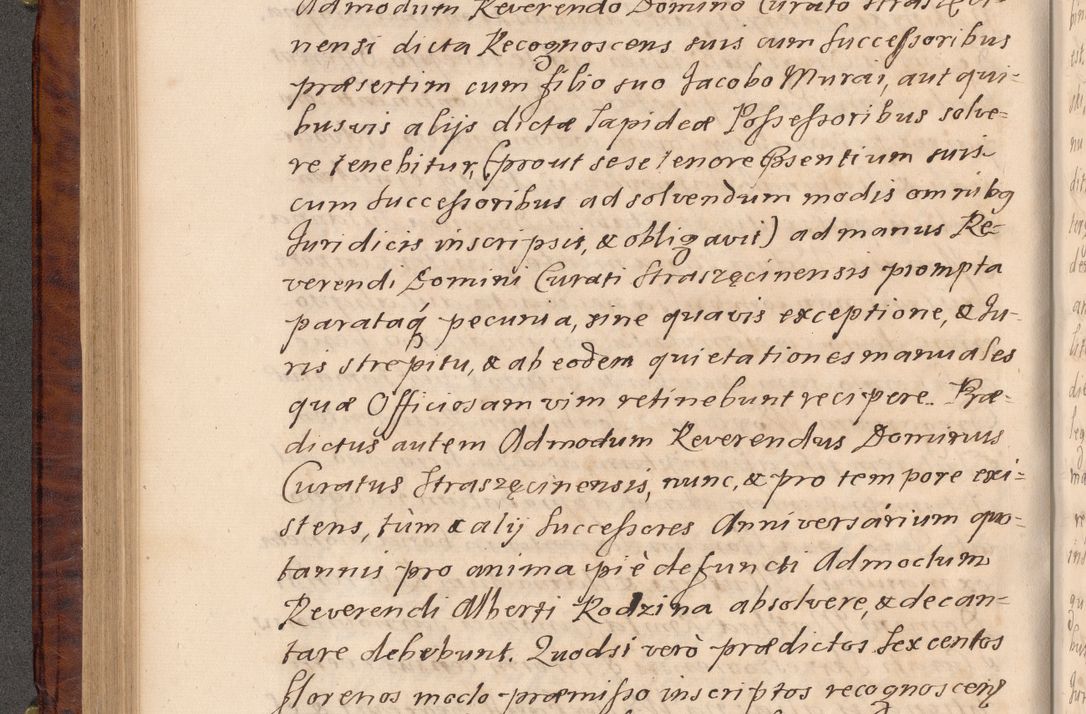 Admodum Reverendo Domino Curato Straszęci-
nensi dicta Recognoscens suis cum Successoribus
præsertim cum filio suo Jacobo Murai, aut qui-
busvis alijs dictæ lapideæ Possessoribus solve-
re tenebitur, (prout sese tenore p̃sentium suis
cum Successoribus ad solvendum modis omnibq
Juridicis inscripsit, & obligavit) ad manus Re-
verendi Domini Curati Straszęcinensis prompta
parataq́ pecunia, sine quavis exceptione, & Ju-
ris strepitu, & ab eodem quietationes manuales
quæ Officiosam vim retinebunt recipere. Præ-
dictus autem Admodum Reverendus Dominus
Curatus Straszęcinensis, nunc, & pro tempore exi-
stens, tùm & alij Successores Anniversarium quo-
tannis pro anima piè defuncti Admodum
Reverendi Alberti Rodzina absolvere, & decan-
tare debebunt. Quodsi verò prædictos Sexcentos
florenos modo præmisso inscriptos recognoscens